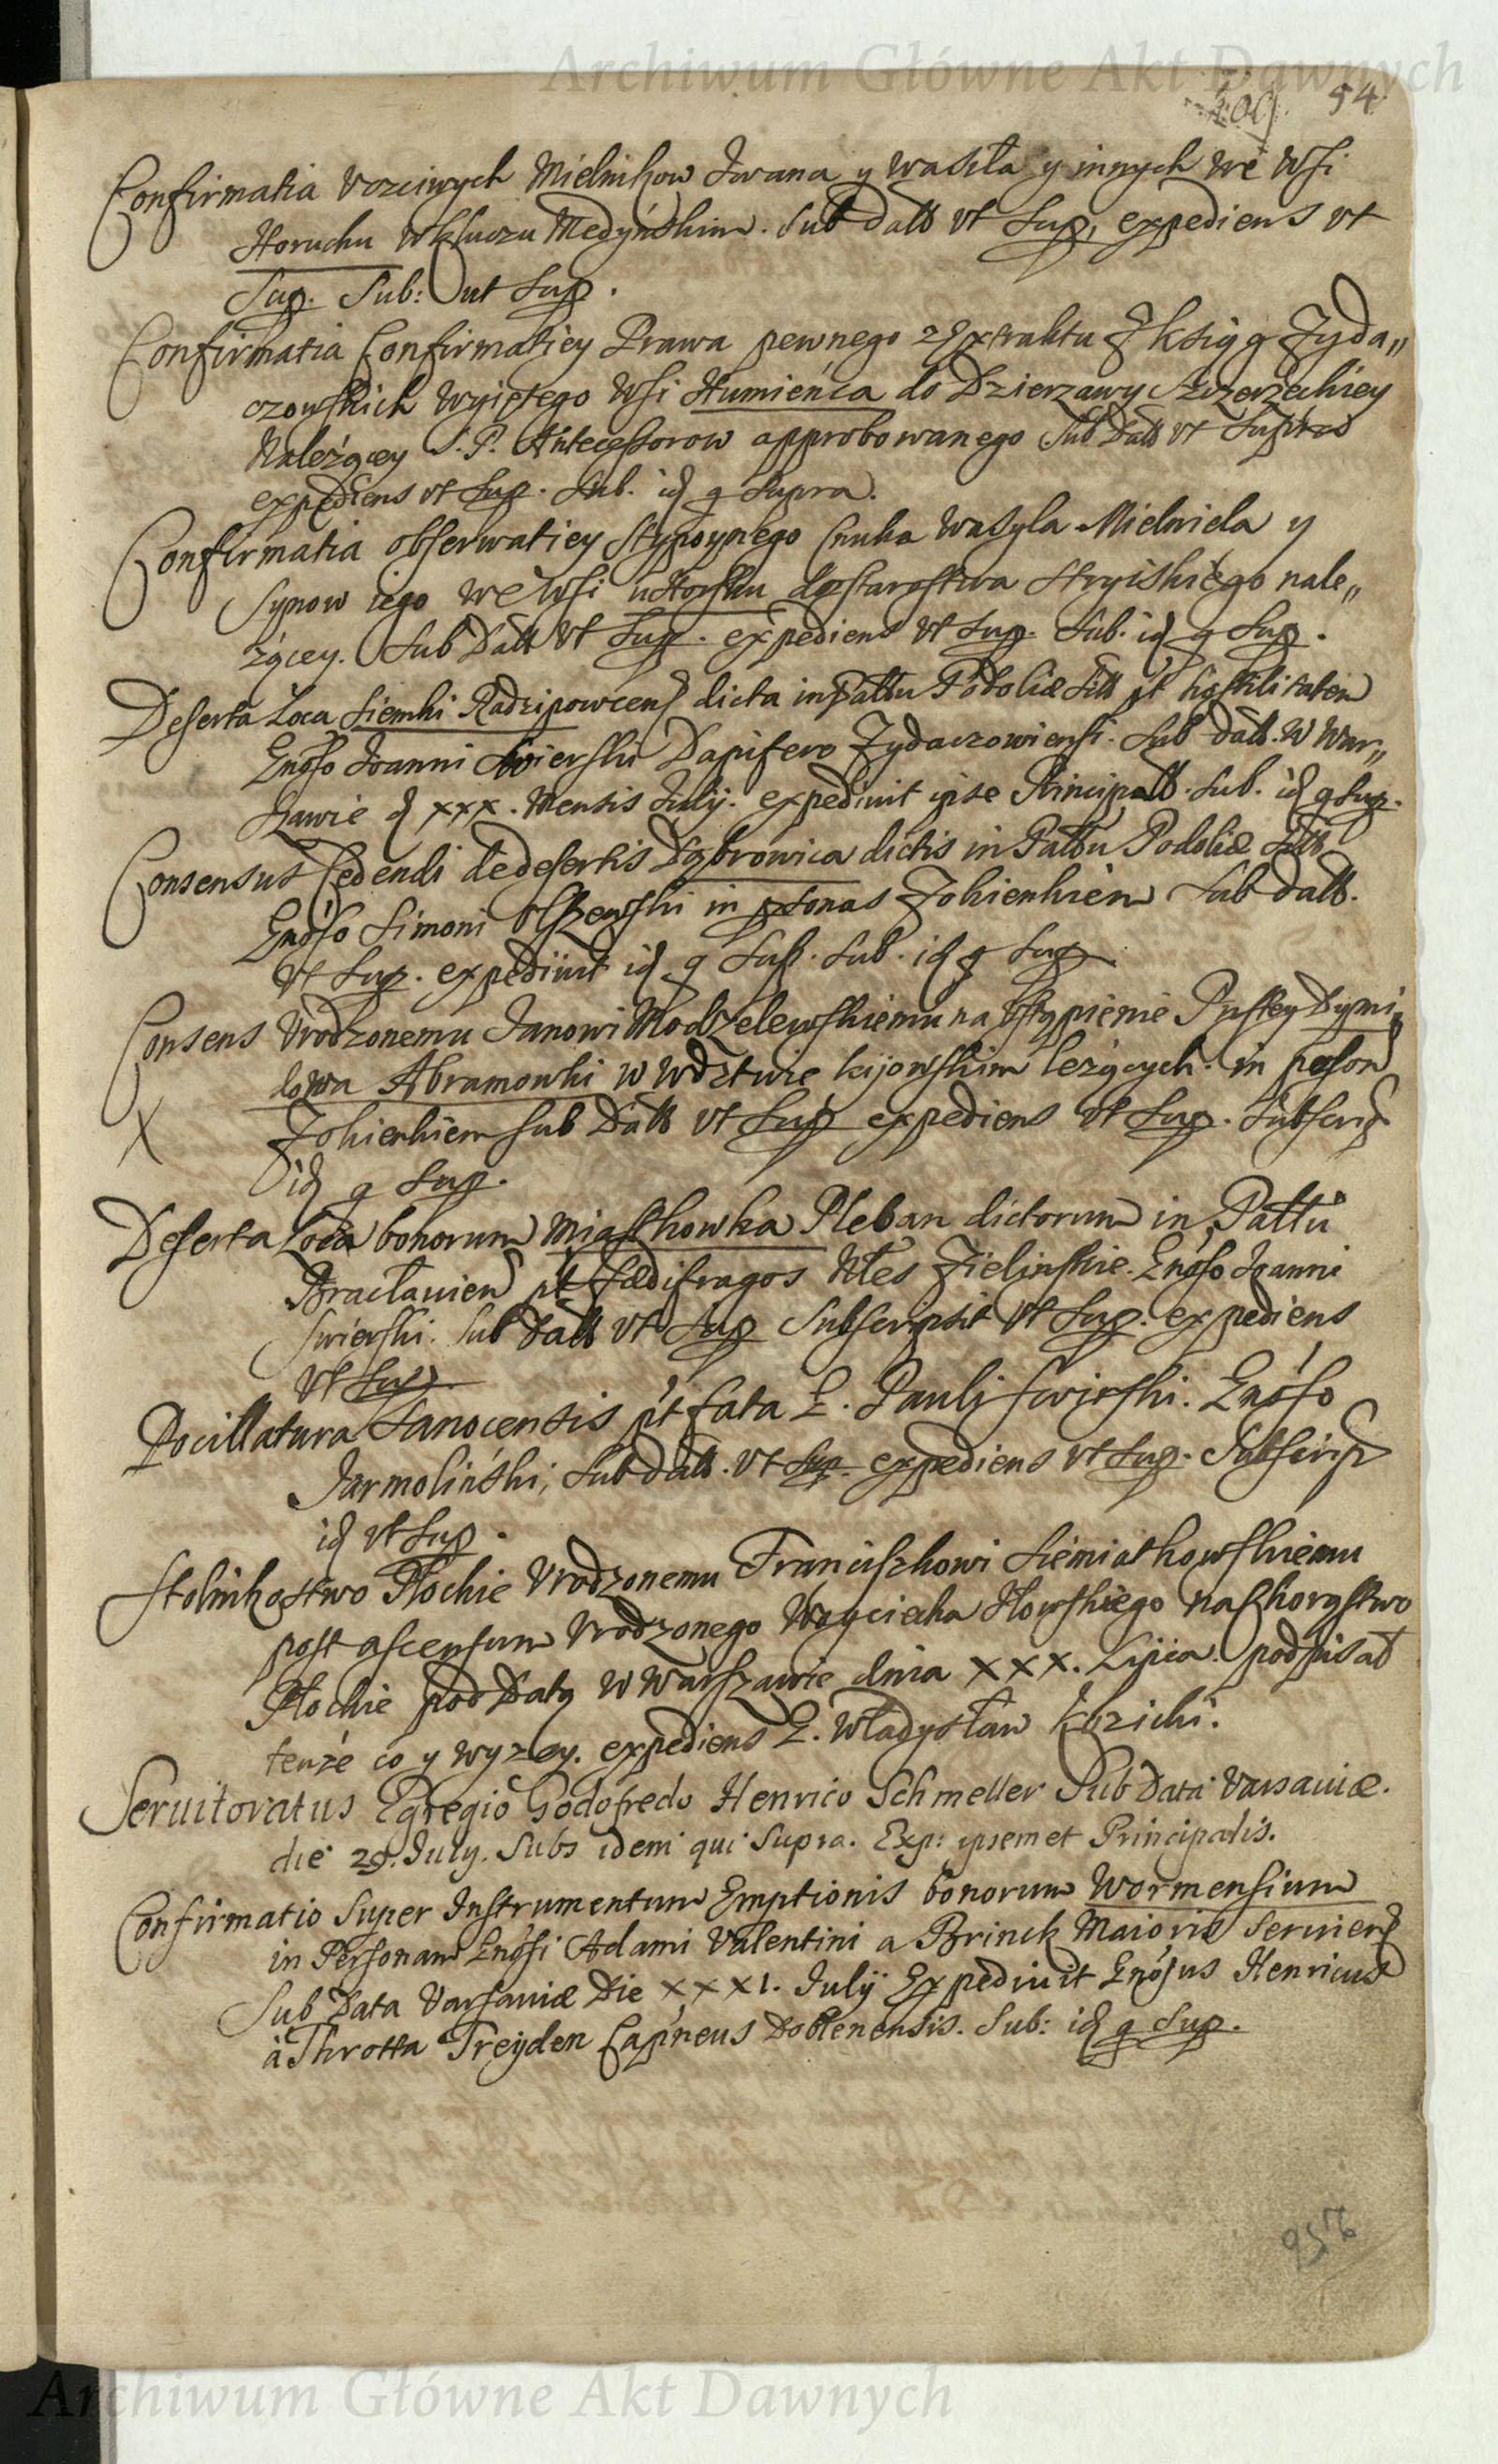 Archiwum Główne Akt Dawnych
54
Confirmatia Vczciwych Mielnikow Iwana y Wasila y innych we Wsi
Horuchu w kluczu Medyńskim. Sub datt vt Sup, expediens vt
Sup. Sub: ut Sup.
Confirmatia Confirmatiey Prawa pewnego z Extraktu z ksiąg Zyda„
czowskich wyiętego Wsi Humieńca do Dzierzawy Szczerzeckiey
Należącey S. P. Antecessorow approbowanego Sub Datt vt Supra
expediens vt Sup. Sub. id q Supra.
Confirmatia obserwatiey Wasyla Mielnika y
Synow iego we Wsi do Starostwa Stryiskiego nale„
żącey. Sub Datt vt Sup. expediens vt Sup. Sub. id q Sup.
Deserta Loca Siemki dicta in Pattu Podoliæ Sitt pt hostilitatem
Gnoso Joanni Swierski Dapifero Zydaczowiensi. Sub datt. w War„
szawie d xxx. Mensis July. expediuit ipse Principalt. Sub. id q Sup.
Consensus Cedendi de desertis Dąbrowica dictis in Pattu Podoliæ Sitt
Gnoso Simoni Olszewski in psonas Zohienkien Sub datt.
vt Sup. expediuit id q Sup. Sub. id q Sup
Consens Vrodzonemu Janowi Modzelewskiemu na Vstąpienie Pustey Dymi„
dowa Abramowki w Wdztwie kijowskim leżących in person
X Zohienkiem Sub Datt vt Sup expediens vt Sup. Subscrip
id q Sup.
Deserta Loca bonorum Miastkowka Pleban dictorum in Pattu
Bracłauien pt fædifragos Nłes Zielinskie. Gnoso Joanni
Swierski. Sub Datt vt Sup Subscripsit vt Sup. expediens
vt Sup
Pocillatura Sanocensis pt fata G. Pauli Swierski. Gnoso
Jarmoliński; Sub datt. vt Sup. expediens vt Sup. Subscrip
id vt Sup.
Stolnikostwo Płockie Vrodzonemu Franciszkowi Siemiatkowskiemu
post ascensum Vrodzonego Woyciecha Howskiego na Chorąstwo
Płockie pod Datą w Warszawie dnia xxx. Lipca podpisał
tenże co y wyzey. expediens G. Władysław Kozicki.
Seruitoratus Egregio Godofredo Henrico Schmeller Sub Data Varsauiæ.
die 29. July. Subs idem qui Supra. Exp: ipsemet Principalis.
Confirmatio Super Instrumentum Emptionis bonorum Wormensium
in Personam Gnosi Adami Valentini a Brinck Maioris
Sub Data Varsauiæ Die xxxi. July Expediuit Gnosus Henricus
à Throtta Treyden Capneus Doblenensis. Sub: id q Sup.
956
Archiwum Główne Akt Dawnych